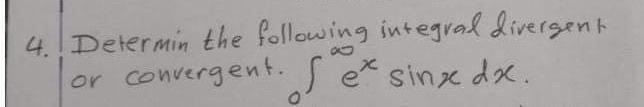 4. Determin the following integral divergent
or convergent. ∫₀^∞ eˣ sinx dx.